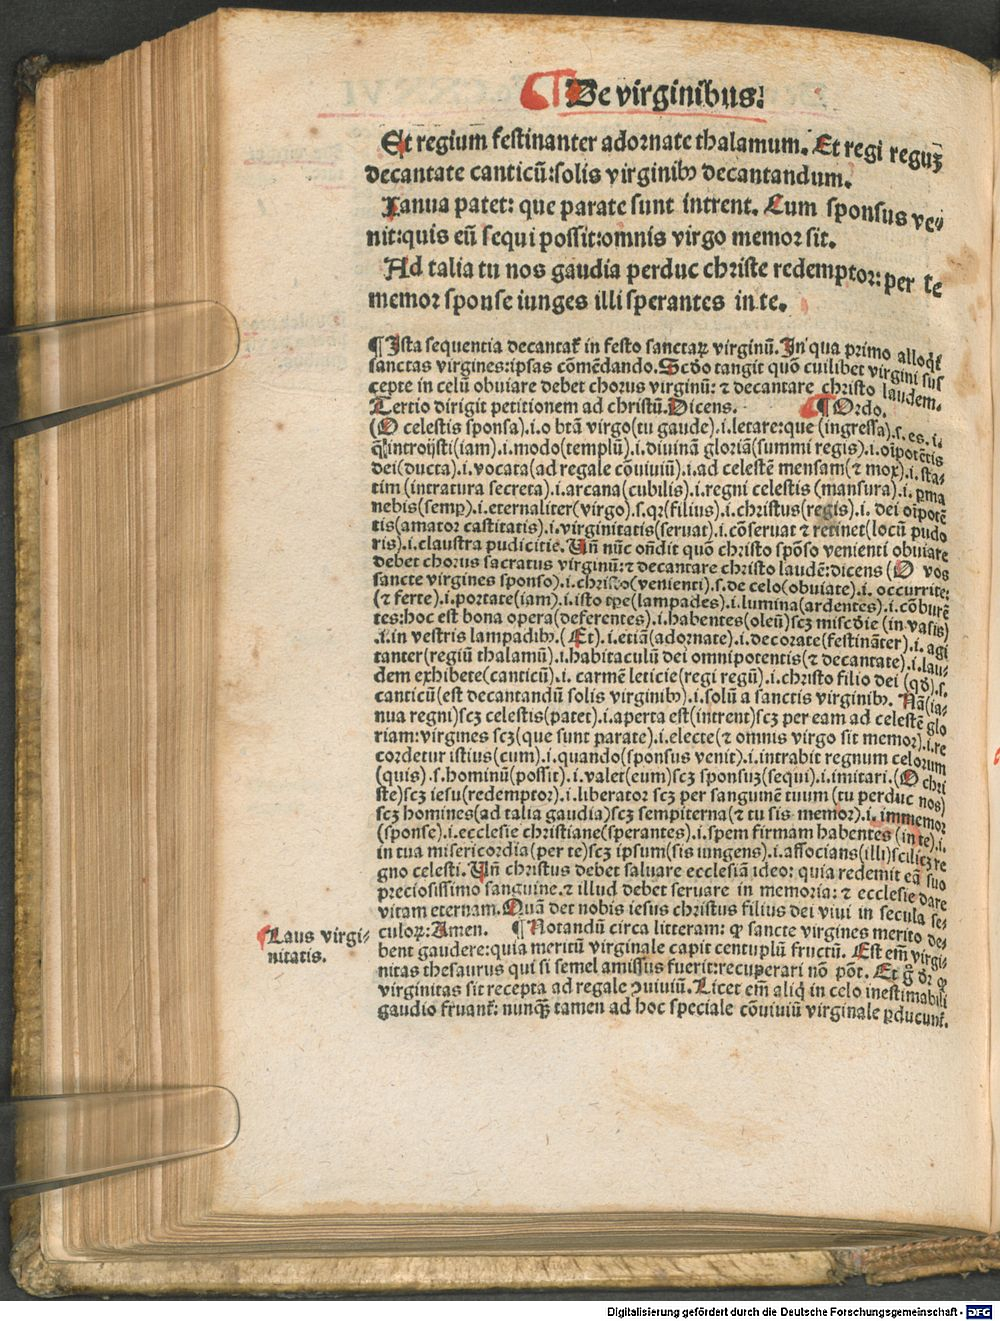 ¶ De virginibus.
Et regium festinanter adornate thalamum. Et regi regūʒ
decantate canticū:solis virginibꝰ decantandum.
Ianua patet: que parate sunt intrent. Cum sponsus ve-
nit:quis eū sequi possit:omnis virgo memor sit.
Ad talia tu nos gaudia perduc christe redemptor:per te
memor sponse iunges illi sperantes in te.
¶ Ista sequentia decantat̄ in festo sanctaꝝ virginū. In qua primo alloqt̄
sanctas virgines:ipsas cōmēdando. Scdo tangit quō cuilibet virgini sus
cepte in celū obuiare debet chorus virginū: ⁊ decantare christo laudem.
Tertio dirigit petitionem ad christū. Dicens. ¶ Ordo.
(O celestis sponsa).i.o btā virgo(tu gaude).i.letare:que (ingressa).s.es.i.
q̄ introijsti(iam).i.modo(templū).i.diuinā gloriā(summi regis).i.oīpotētis
dei(ducta).i.vocata(ad regale cōuiuiū).i.ad celestē mensam(⁊ mox).i.sta-
tim (intratura secreta).i.arcana(cubilis).i.regni celestis (mansura).i.ꝑma
nebis(semꝑ).i.eternaliter(virgo).s.qr(filius).i.christus(regis).i. dei oīpotē
tis(amator castitatis).i.virginitatis(seruat).i.cōseruat ⁊ retinet(locū pudo
ris).i.claustra pudicitie. Vn̄ nūc on̄dit quō christo spōso venienti obuiare
debet chorus sacratus virginū:⁊ decantare christo laudē:dicens (O vos
sancte virgines sponso).i.christo(venienti).s.de celo(obuiate).i. occurrite:
(⁊ ferte).i.portate(iam).i.isto tꝑe(lampades).i.lumina(ardentes).i.cōburē
tes:hoc est bona opera(deferentes).i.habentes(oleū)scʒ miscdie (in vasis)
.i.in vestris lampadibꝰ.(Et).i.etiā(adornate).i.decorate(festināter).i.agi
tanter(regiū thalamū).i.habitaculū dei omnipotentis(⁊ decantate).i.lau-
dem exhibete(canticū).i. carmē leticie(regi regū).i.christo filio dei (qđ).s.
canticū(est decantandū solis virginibꝰ).i.solū a sanctis virginibꝰ. Nā(ia-
nua regni)scʒ celestis(patet).i.aperta est(intrent)scʒ per eam ad celestē glo
riam:virgines scʒ(que sunt parate).i.electe(⁊ omnis virgo sit memor).i.re
cordetur istius(cum).i.quando(sponsus venit).i.intrabit regnum celorum
(quis).s.hominū(possit).i.valet(eum)scʒ sponsuʒ(sequi).i.imitari.(O chri
ste)scʒ iesu(redemptor).i.liberator scʒ per sanguinē tuum (tu perduc nos)
scʒ homines(ad talia gaudia)scʒ sempiterna(⁊ tu sis memor).i. immemor
(sponse).i.ecclesie christiane(sperantes).i.spem firmam habentes (in te).i.
in tua misericordia(per te)scʒ ipsum(sis iungens).i.associans(illi)scilicʒ re
gno celesti. Vn̄ christus debet saluare ecclesiā ideo: quia redemit eā suo
preciosissimo sanguine.⁊ illud debet seruare in memoria: ⁊ ecclesie dare
vitam eternam. Quā det nobis iesus christus filius dei viui in secula se-
culoꝝ:Amen. ¶ Notandū circa litteram: ꝙ sancte virgines merito de-
bent gaudere:quia meritū virginale capit centuplū fructū. Est em̄ virgi-
nitas thesaurus qui si semel amissus fuerit:recuperari nō pōt. Et g̃ dr̄ ꝙ
virginitas sit recepta ad regale ꝯuiuiū. Licet em̄ aliq̄ in celo inestimabili
gaudio fruant̄: nunqȝ tamen ad hoc speciale cōuiuiū virginale ꝑducunt̄.
Laus virgi-
nitatis.
Digitalisierung gefördert durch die Deutsche Forschungsgemeinschaft - DFG